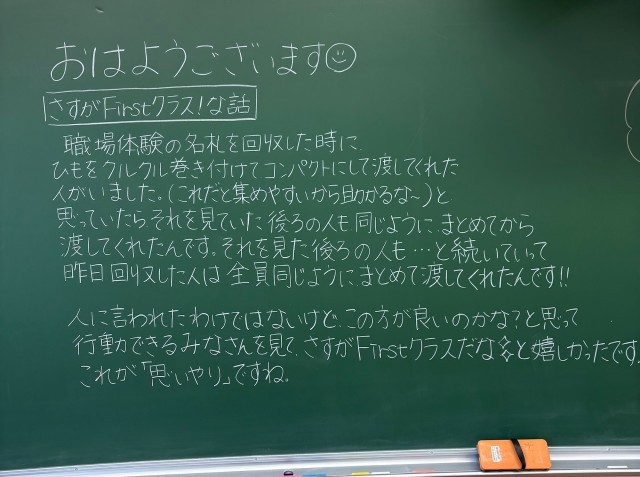 おはようございます☺
さすがFirstクラス!な話
職場体験の名札を回収した時に、
ひもをクルクル巻き付けてコンパクトにして渡してくれた
人がいました。(これだと集めやすいから助かるな〜)と
思っていたら、それを見ていた後ろの人も同じようにまとめてから
渡してくれたんです。それを見た後ろの人も…と続いていって
昨日回収した人は全員同じようにまとめて渡してくれたんです!!
人に言われたわけではないけど、この方が良いのかな?と思って
行動できるみなさんを見て、さすがFirstクラスだな✨と嬉しかったです。
これが「思いやり」ですね。